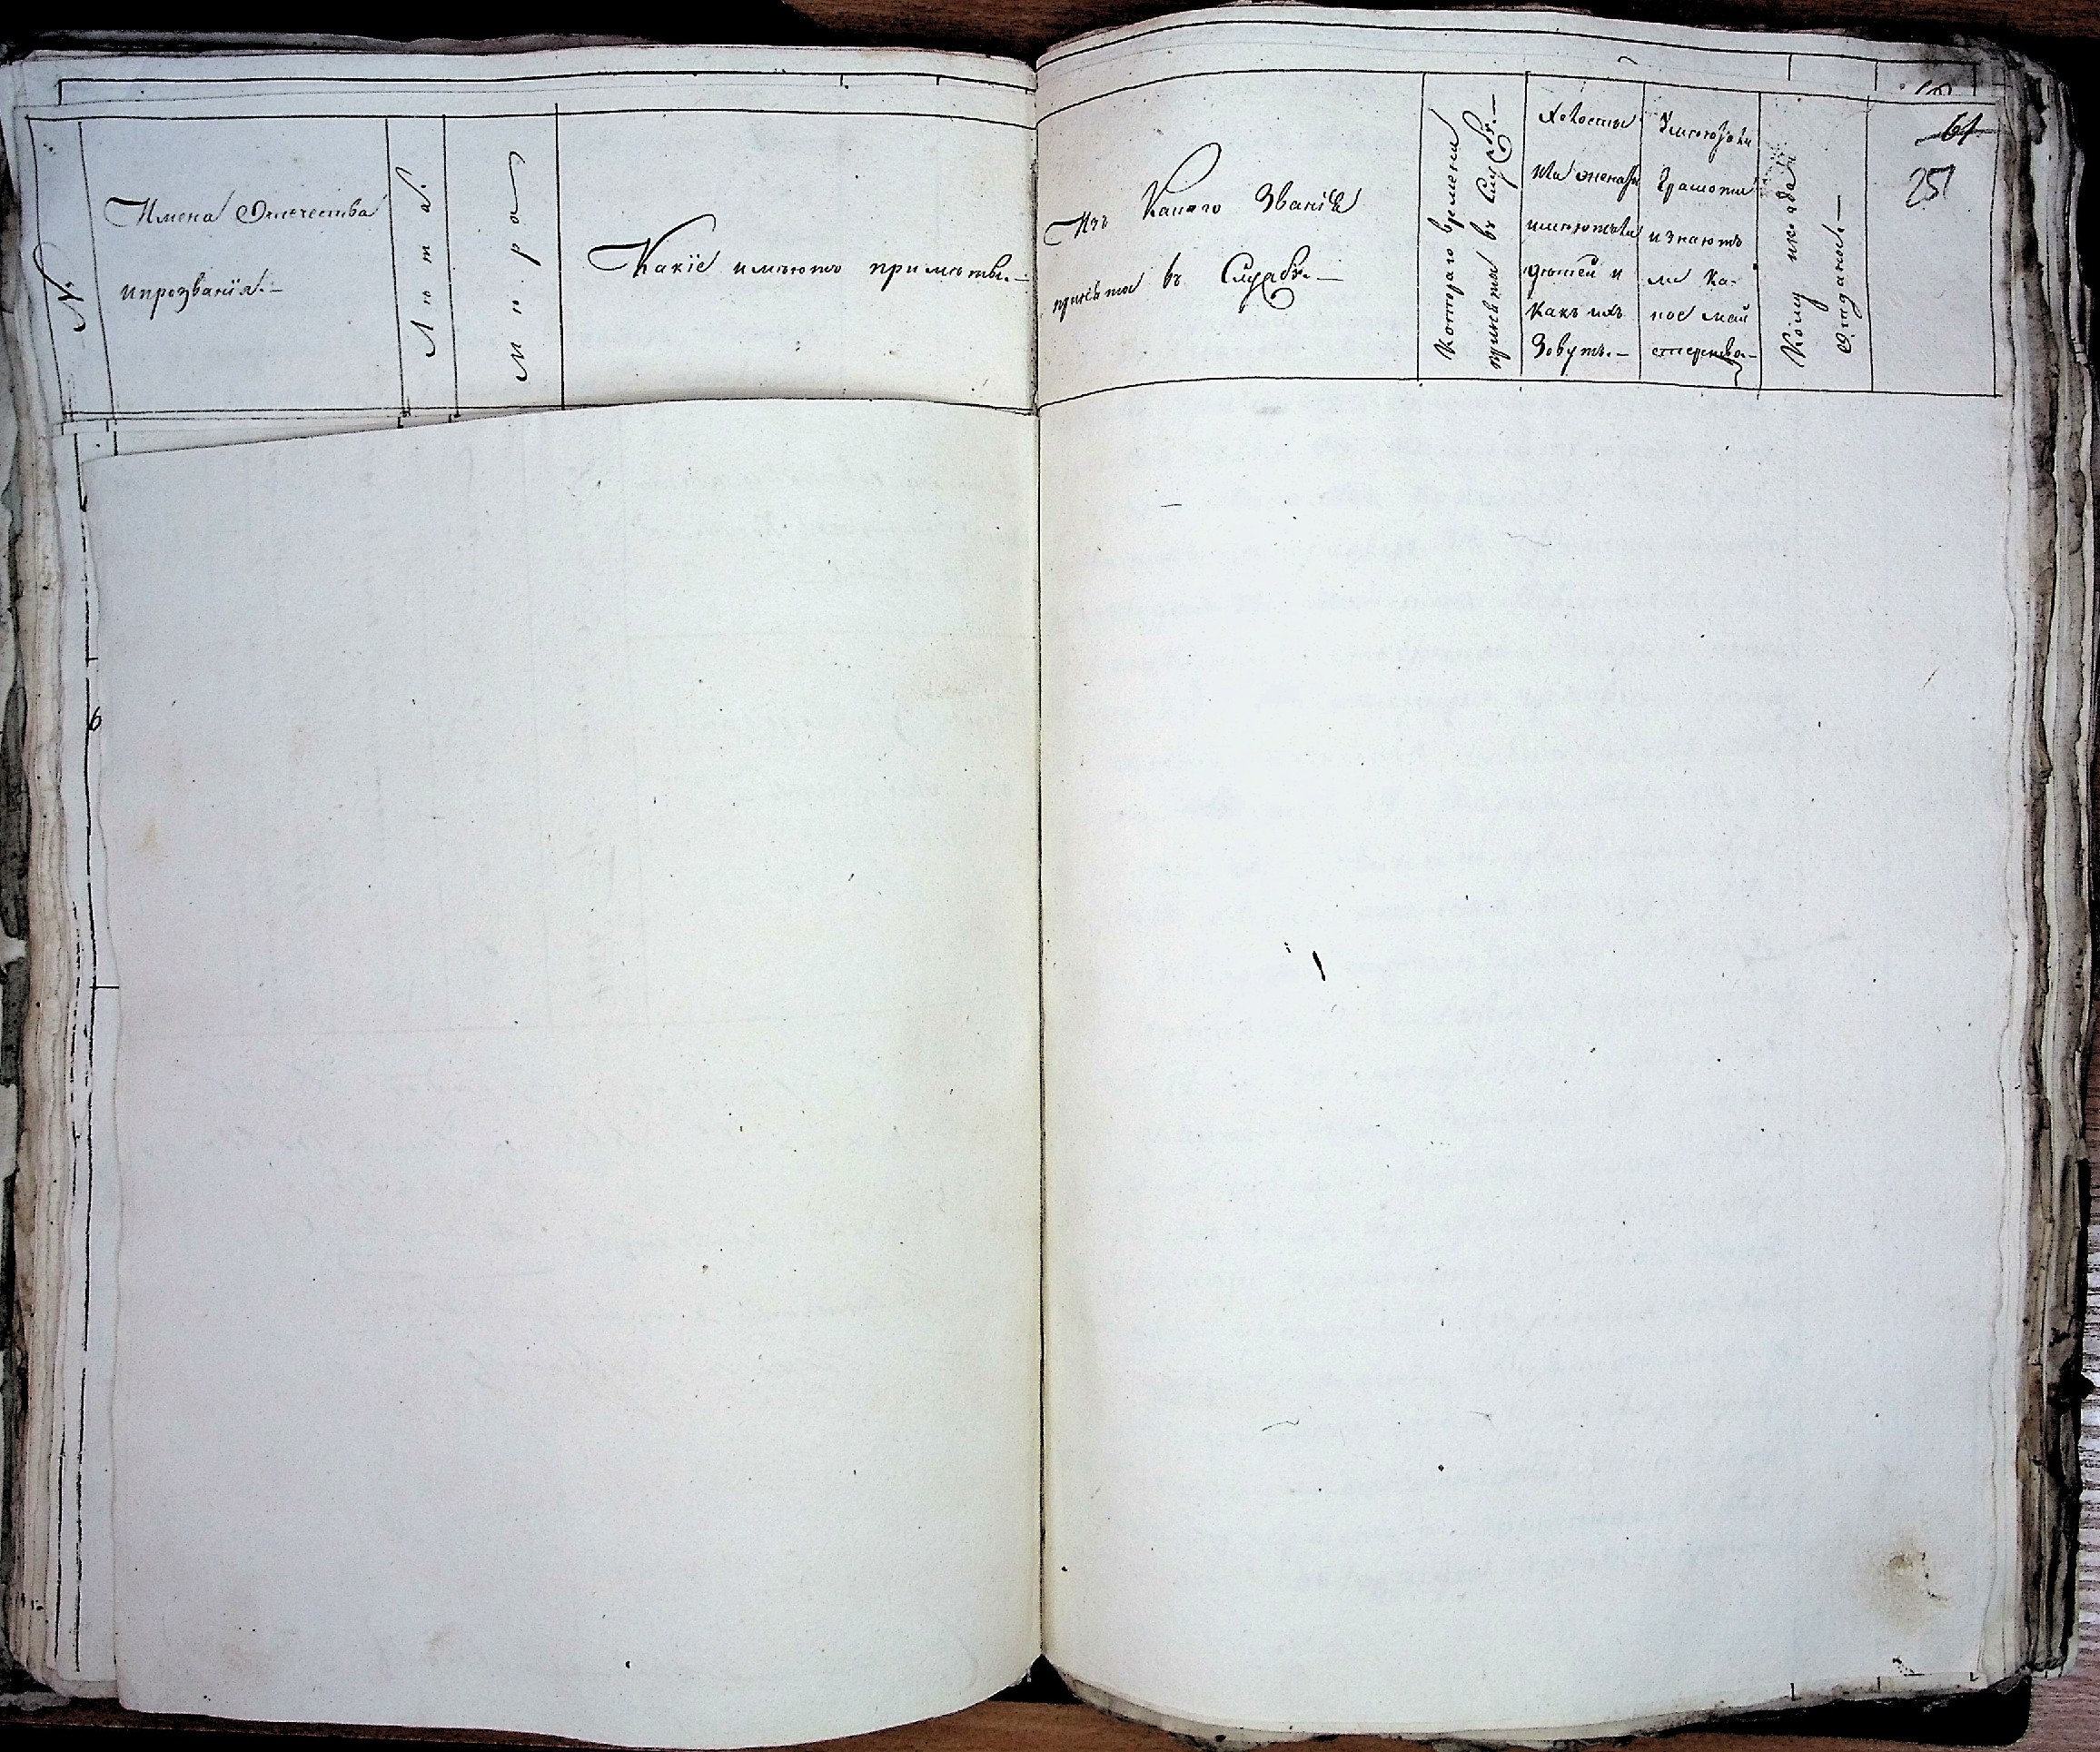 №
Имена Отечества
ипрозванїя.-
Лѣта.
Мѣра
Какїе имѣютъ примѣты.-
Изъ Какого Званїя
приняты въ Службу.-
Котораго времени
приняты въ Службу.-
Холосты
или женаты
имеютъ ли
дѣтей и
какъ ихъ
Зовутъ.-
Умеютъ ли
Грамоте
и знаютъ
ли ка-
кое май
стерство.-
Кому и когда
Отданы.-
61
251
6